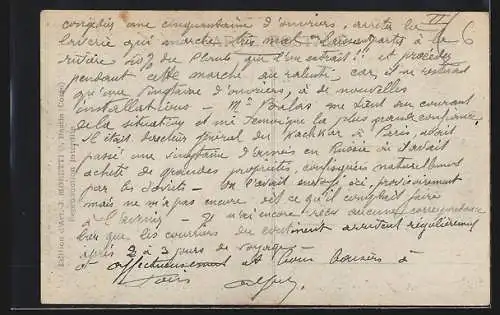 congédier une cinquantaine d'ouvriers, arrêter la
laverie qui marche très mal et laissant partir à la
rivière 10% du Plomb, qu'il en extrait!! et procéder
pendant cette marche au ralenti, car il ne restait
qu'une vingtaine d'ouvriers, à de nouvelles
installations - Mr me tient au courant
de la situation et me témoigne la plus grande confiance.
Il était directeur général du à Paris, avait
passé une vingtaine d'années en Russie où il avait
acheté de grandes propriétés, confisquées naturellement
par les Soviets - On l'avait envoyé ici, provisoirement
mais ne m'a pas encore dit ce qu'il comptait faire
à l'avenir - Je n'ai encore reçu aucune correspondance
bien que les courriers du continent arrivent régulièrement
après 2 à 3 jours de voyage -
et affectueusement et bons baisers à
tous
VII 6
Edition d'Art J. MORETTI Bastia (Corse)
Reproduction interdite